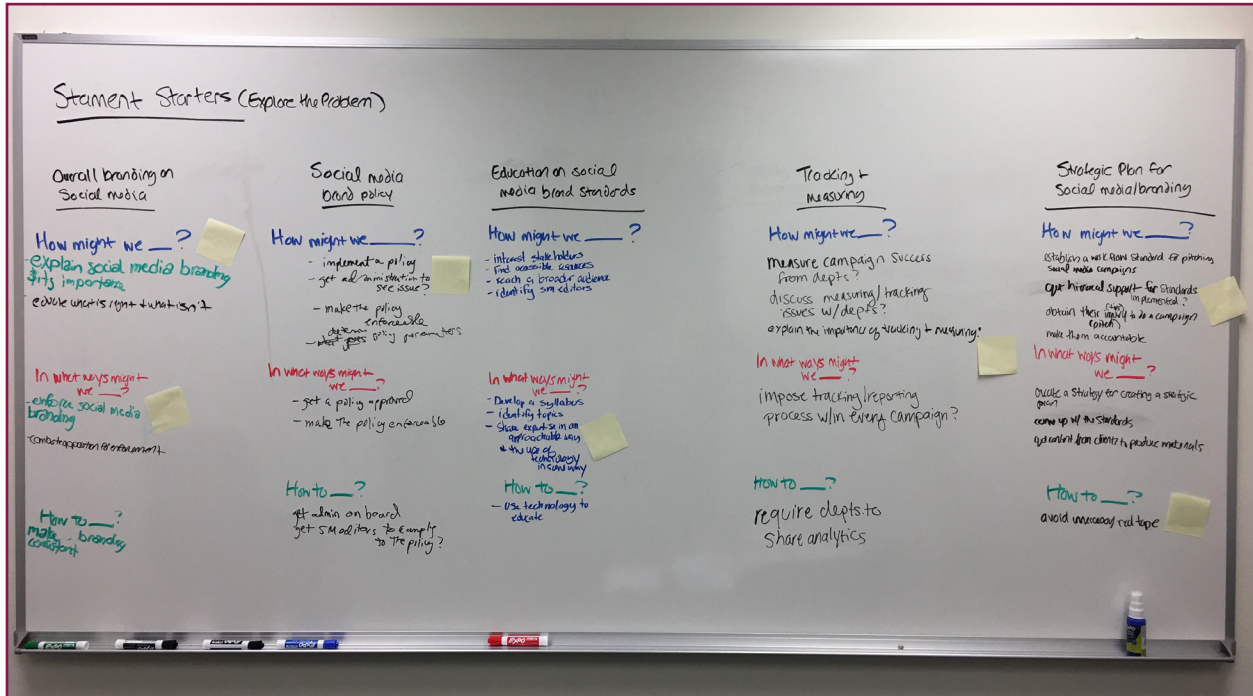 Stament Starters (Explore the Problem)
Overall branding on
Social media
How might we ___?
- explain social media branding
& its importance
- educate what is right + what isn't
In what ways might
we ___?
- enforce social media
branding
combat opposition for enforcement
How to ___?
make branding
consistent
Social media
brand policy
How might we ___?
- implement a policy
- get administration to
see issue?
- make the policy
enforceable
determin
- policy parameters
In what ways might
we ___?
- get a policy approved
- make the policy enforceable
How to ___?
get admin on board
get SM editors to comply
to the policy?
Education on social
media brand standards
How might we ___?
- interest stakeholders
- find accessible resources
- reach a broader audience
- identify sm editors
In what ways might
we ___?
- Develop a syllabus
- identify topics
- Share expertise in an
approachable way
the use of
technology
in some way
How to ___?
- use technology to
educate
Tracking +
measuring
How might we ___?
measure campaign success
from depts?
discuss measuring/tracking
issues w/depts?
explain the importance of tracking + measuring?
In what ways might
we ___?
impose tracking/reporting
process w/in every campaign?
How to ___?
require depts to
share analytics
Strategic Plan for
Social media/branding
How might we ___?
establish a work flow standard for pitching
social media campaigns
get support for standards
implemented?
obtain their to do a campaign
(pitch)
make them accountable
In what ways might
we ___?
create a strategy for creating a strategic
plan
come up w/ the standards
get content from clients to produce materials
How to ___?
avoid red tape
EXPO
EXPO
EXPO
EXPO
EXPO